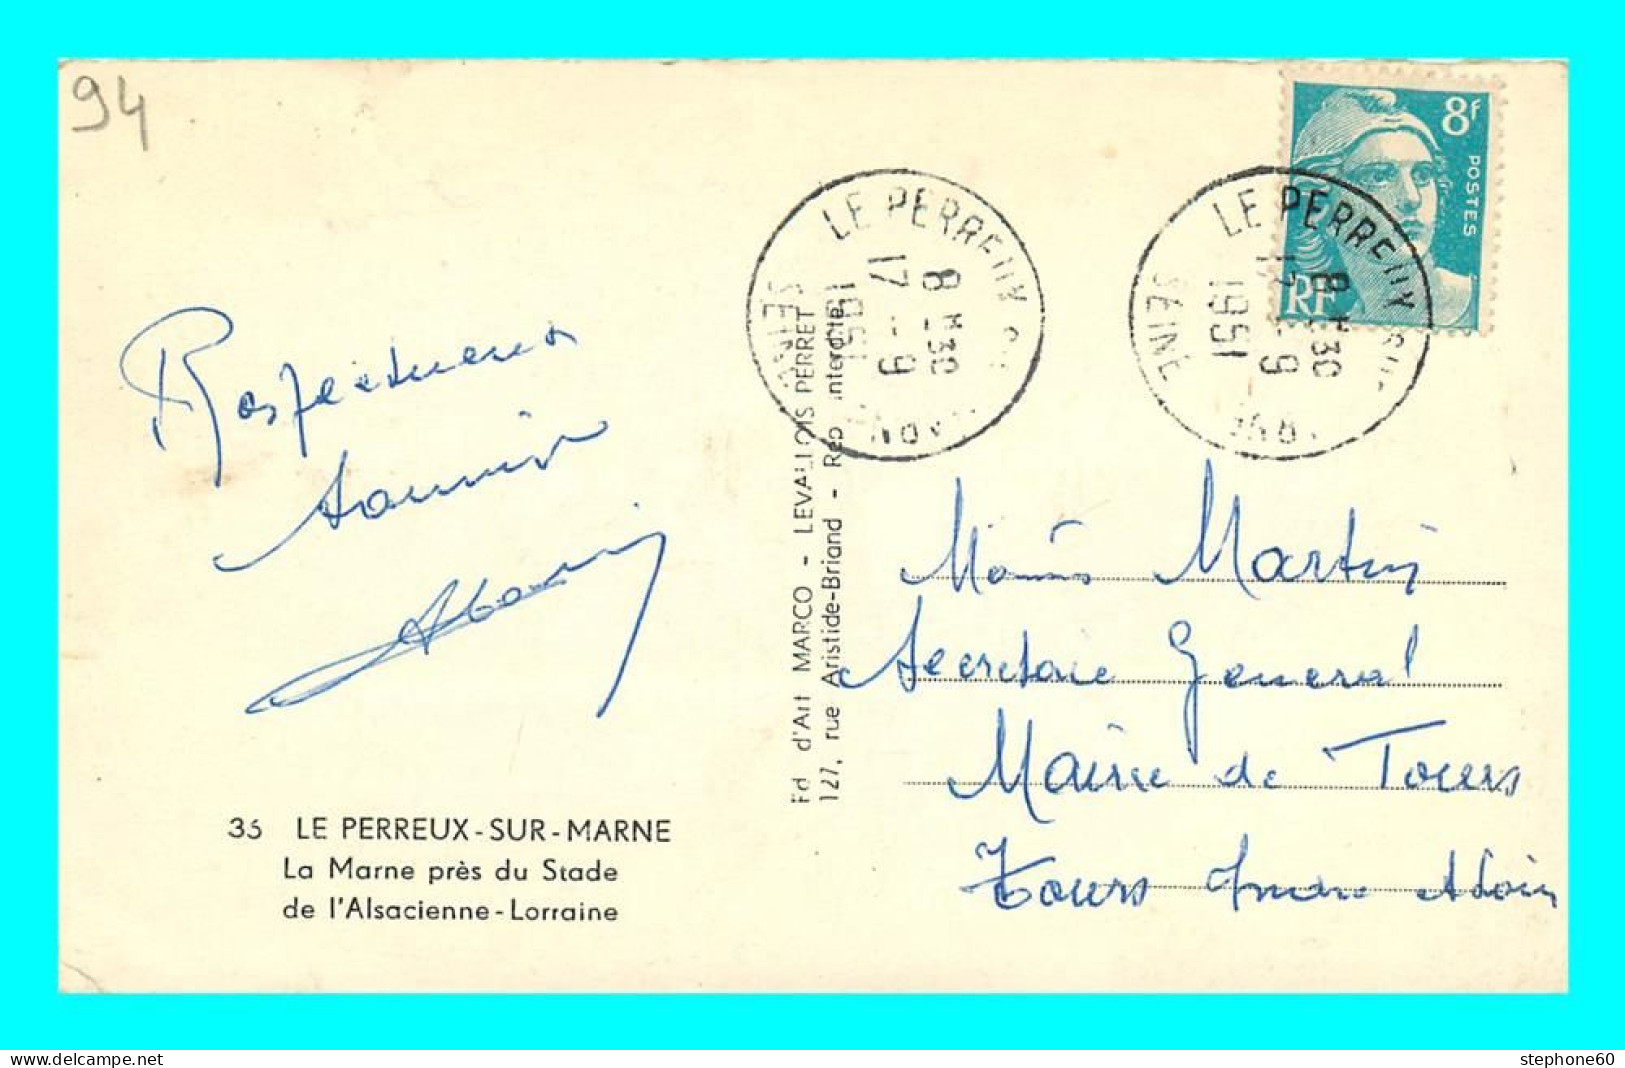 94
8f
POSTES
RF
LE PERREUX
8 H 30
17 - 9
1951
SEINE
LE PERREUX
8 H 30
17 - 9
1951
SEINE
Respectueux
souvenir
Ed d'Art MARCO - LEVALLOIS PERRET
127, rue Aristide-Briand - Rep interdite
Martin
Secretaire General
Mairie de Tours
Tours Indre & Loire
35 LE PERREUX-SUR-MARNE
La Marne près du Stade
de l'Alsacienne-Lorraine
stephone60